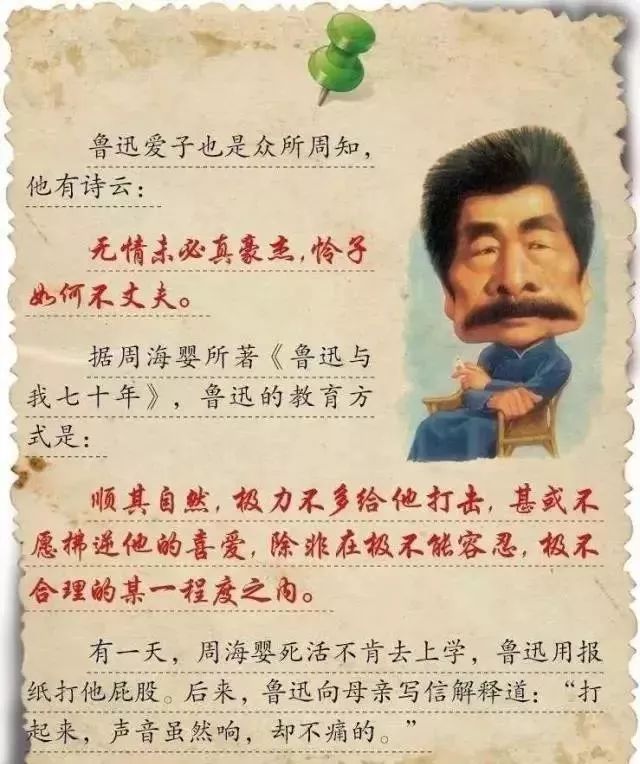 鲁迅爱子也是众所周知，
他有诗云：
无情未必真豪杰，怜子
如何不丈夫。
据周海婴所著《鲁迅与
我七十年》，鲁迅的教育方
式是：
顺其自然，极力不多给他打击，甚或不
愿拂逆他的喜爱，除非在极不能容忍，极不
合理的某一程度之内。
有一天，周海婴死活不肯去上学，鲁迅用报
纸打他屁股。后来，鲁迅向母亲写信解释道：“打
起来，声音虽然响，却不痛的。”